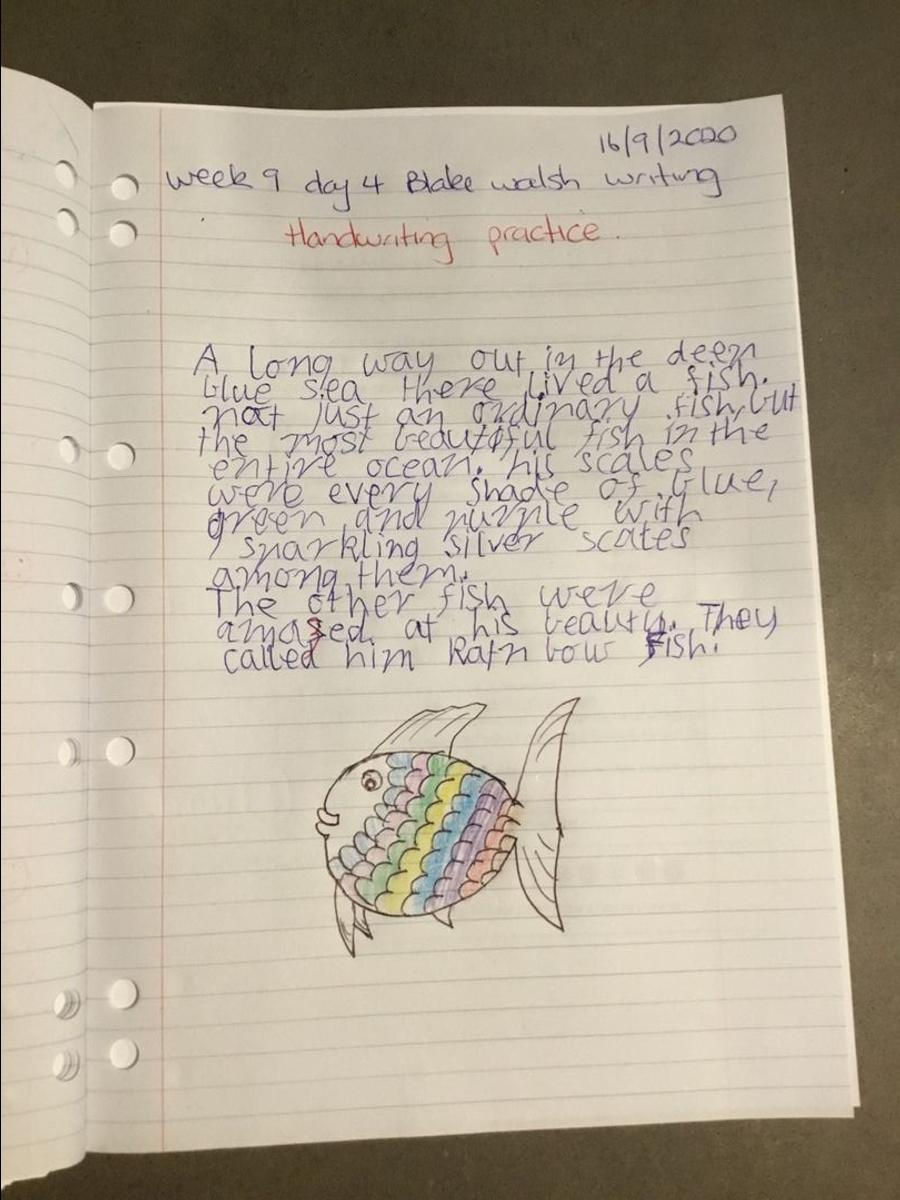 16/9/2020
week 9 day 4 Blake walsh writing
Handwriting practice.
A long way out in the deep
blue sea there lived a fish.
not just an ordinary fish, but
the most beautiful fish in the
entire ocean. his scales
were every shade of blue,
green and purple with
sparkling silver scales
among them.
The other fish were
amased at his beauty. They
called him Rain bow Fish.